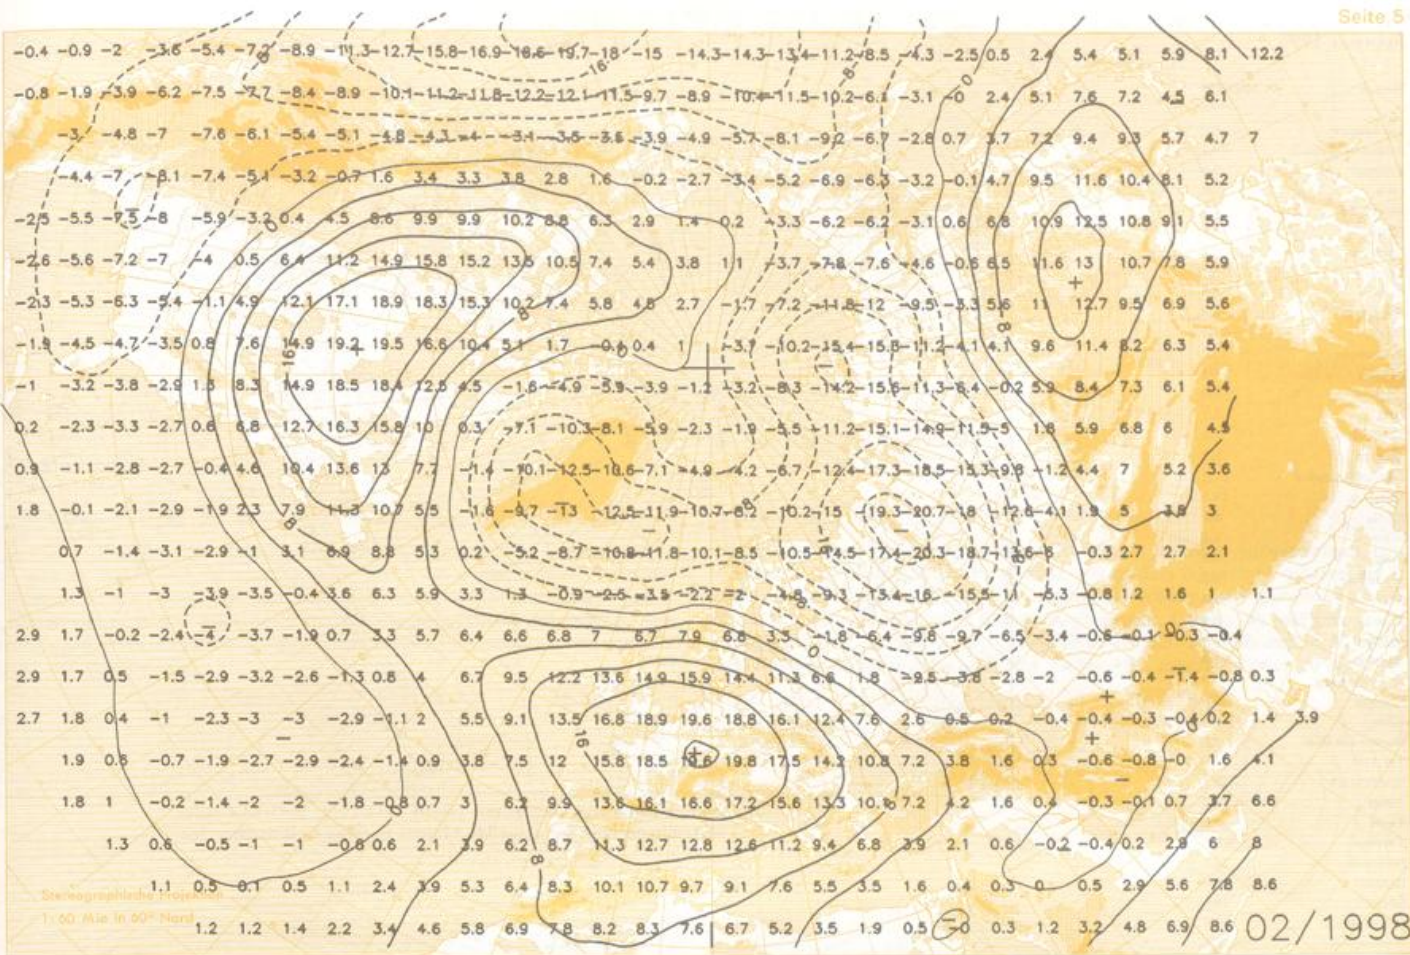 Seite 5
-0.4 -0.9 -2 -3.6 -5.4 -7.2 -8.9 -11.3 -12.7 -15.8 -16.9 -18.6 -19.7 -18 -15 -14.3 -14.3 -13.4 -11.2 -8.5 -4.3 -2.5 0.5 2.4 5.4 5.1 5.9 8.1 12.2
-0.8 -1.9 -3.9 -6.2 -7.5 -7.7 -8.4 -8.9 -10.1 -11.2 -11.8 -12.2 -12.1 -11.5 -9.7 -8.9 -10.4 -11.5 -10.2 -6.1 -3.1 -0 2.4 5.1 7.6 7.2 4.5 6.1
-3 -4.8 -7 -7.6 -6.1 -5.4 -5.1 -4.8 -4.3 -4 -3.1 -3.5 -3.6 -3.9 -4.9 -5.7 -8.1 -9.2 -6.7 -2.8 0.7 3.7 7.2 9.4 9.3 5.7 4.7 7
-4.4 -7 -8.1 -7.4 -5.1 -3.2 -0.7 1.6 3.4 3.3 3.8 2.8 1.6 -0.2 -2.7 -3.4 -5.2 -6.9 -6.3 -3.2 -0.1 4.7 9.5 11.6 10.4 8.1 5.2
-2.5 -5.5 -7.5 -8 -5.9 -3.2 0.4 4.5 8.6 9.9 9.9 10.2 8.8 6.3 2.9 1.4 0.2 -3.3 -6.2 -6.2 -3.1 0.6 6.8 10.9 12.5 10.8 9.1 5.5
-2.6 -5.6 -7.2 -7 -4 0.5 6.4 11.2 14.9 15.8 15.2 13.5 10.5 7.4 5.4 3.8 1.1 -3.7 -7.8 -7.6 -4.6 -0.6 6.5 11.6 13 10.7 7.8 5.9
-2.3 -5.3 -6.3 -5.4 -1.1 4.9 12.1 17.1 18.9 18.3 15.3 10.2 7.4 5.8 4.8 2.7 -1.7 -7.2 -11.8 -12 -9.5 -3.3 5.6 11 12.7 9.5 6.9 5.6
-1.9 -4.5 -4.7 -3.5 0.8 7.6 14.9 19.2 19.5 16.6 10.4 5.1 1.7 -0.4 0.4 1 -3.1 -10.2 -15.4 -15.8 -11.2 -4.1 4.1 9.6 11.4 8.2 6.3 5.4
-1 -3.2 -3.8 -2.9 1.3 8.3 14.9 18.5 18.4 12.5 4.5 -1.6 -4.9 -5.9 -3.9 -1.2 -3.2 -8.3 -14.2 -15.6 -11.3 -6.4 -0.2 5.9 8.4 7.3 6.1 5.4
0.2 -2.3 -3.3 -2.7 0.6 6.8 12.7 16.3 15.8 10 0.3 -7.1 -10.3 -8.1 -5.9 -2.3 -1.9 -5.5 -11.2 -15.1 -14.9 -11.5 -5 1.8 5.9 6.8 6 4.5
0.9 -1.1 -2.8 -2.7 -0.4 4.6 10.4 13.6 13 7.7 -1.4 -10.1 -12.5 -10.6 -7.1 -4.9 -4.2 -6.7 -12.4 -17.3 -18.5 -15.3 -9.8 -1.2 4.4 7 5.2 3.6
1.8 -0.1 -2.1 -2.9 -1.9 2.3 7.9 11.3 10.7 5.5 -1.6 -9.7 -13 -12.5 -11.9 -10.7 -8.2 -10.2 -15 -19.3 -20.7 -18 -12.6 -4.1 1.9 5 3.8 3
0.7 -1.4 -3.1 -2.9 -1 3.1 6.9 8.8 5.3 0.2 -5.2 -8.7 -10.8 -11.8 -10.1 -8.5 -10.5 -14.5 -17.4 -20.3 -18.7 -13.6 -6 -0.3 2.7 2.7 2.1
1.3 -1 -3 -3.9 -3.5 -0.4 3.6 6.3 5.9 3.3 1.3 -0.9 -2.5 -3.5 -2.2 -2 -4.8 -9.3 -13.4 -16 -15.5 -11 -5.3 -0.8 1.2 1.6 1 1.1
2.9 1.7 -0.2 -2.4 -4 -3.7 -1.9 0.7 3.3 5.7 6.4 6.6 6.8 7 6.7 7.9 6.8 3.3 -1.8 -6.4 -9.8 -9.7 -6.5 -3.4 -0.6 -0.1 -0.3 -0.4
2.9 1.7 0.5 -1.5 -2.9 -3.2 -2.6 -1.3 0.8 4 6.7 9.5 12.2 13.6 14.9 15.9 14.4 11.3 6.6 1.8 -2.5 -3.8 -2.8 -2 -0.6 -0.4 -1.4 -0.8 0.3
2.7 1.8 0.4 -1 -2.3 -3 -3 -2.9 -1.1 2 5.5 9.1 13.5 16.8 18.9 19.6 18.8 16.1 12.4 7.6 2.6 0.5 0.2 -0.4 -0.4 -0.3 -0.4 0.2 1.4 3.9
1.9 0.6 -0.7 -1.9 -2.7 -2.9 -2.4 -1.4 0.9 3.8 7.5 12 15.8 18.5 19.6 19.8 17.5 14.2 10.8 7.2 3.8 1.6 0.3 -0.6 -0.8 -0 1.6 4.1
1.8 1 -0.2 -1.4 -2 -2 -1.8 -0.8 0.7 3 6.2 9.9 13.6 16.1 16.6 17.2 15.6 13.3 10.1 7.2 4.2 1.6 0.4 -0.3 -0.1 0.7 3.7 6.6
1.3 0.6 -0.5 -1 -1 -0.6 0.6 2.1 3.9 6.2 8.7 11.3 12.7 12.8 12.6 11.2 9.4 6.8 3.9 2.1 0.6 -0.2 -0.4 0.2 2.9 6 8
1.1 0.5 0.1 0.5 1.1 2.4 3.9 5.3 6.4 8.3 10.1 10.7 9.7 9.1 7.6 5.5 3.5 1.6 0.4 0.3 0 0.5 2.9 5.6 7.8 8.6
Stereographische Projektion
1:60 Mio in 60° Nord
1.2 1.2 1.4 2.2 3.4 4.6 5.8 6.9 7.8 8.2 8.3 7.6 6.7 5.2 3.5 1.9 0.5 -0 0.3 1.2 3.2 4.8 6.9 8.6 02/1998